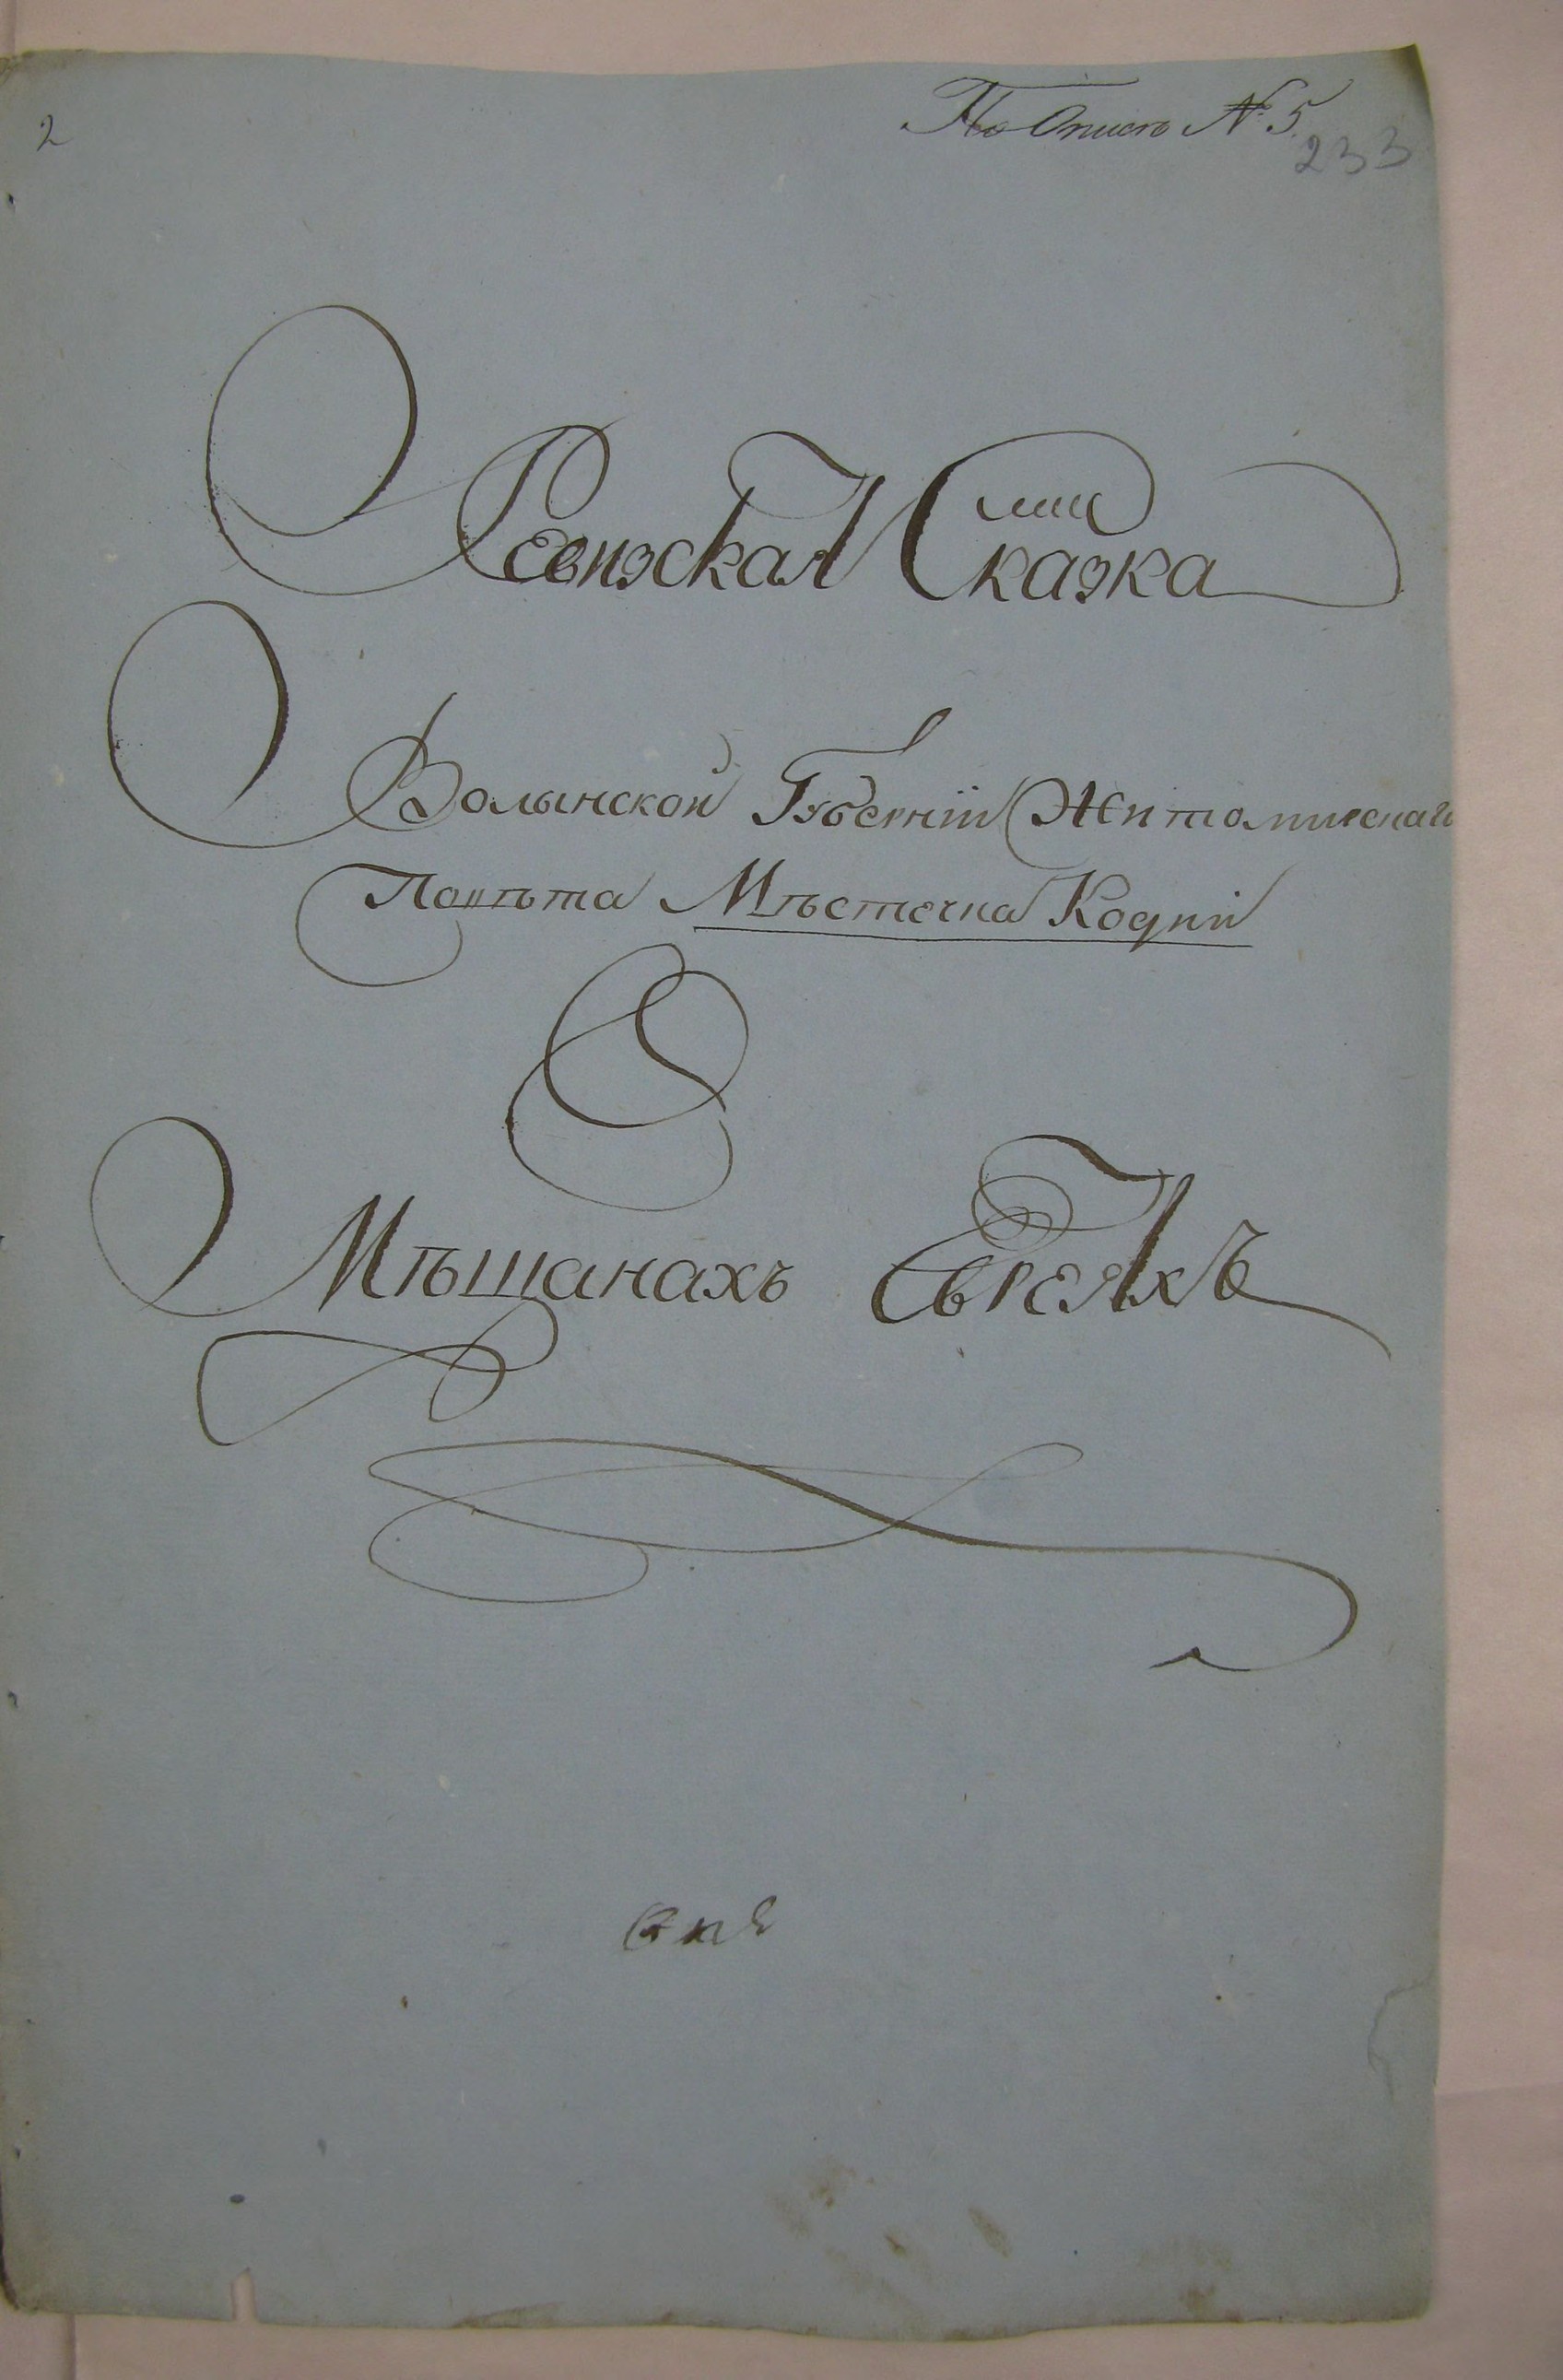 2
По Описѣ № 5.
233
Ревизская Сказка
Волынской Губерніи Житомирскаго
Повѣта Мѣстечка Кодни
О
Мѣщанахъ Евреяхъ